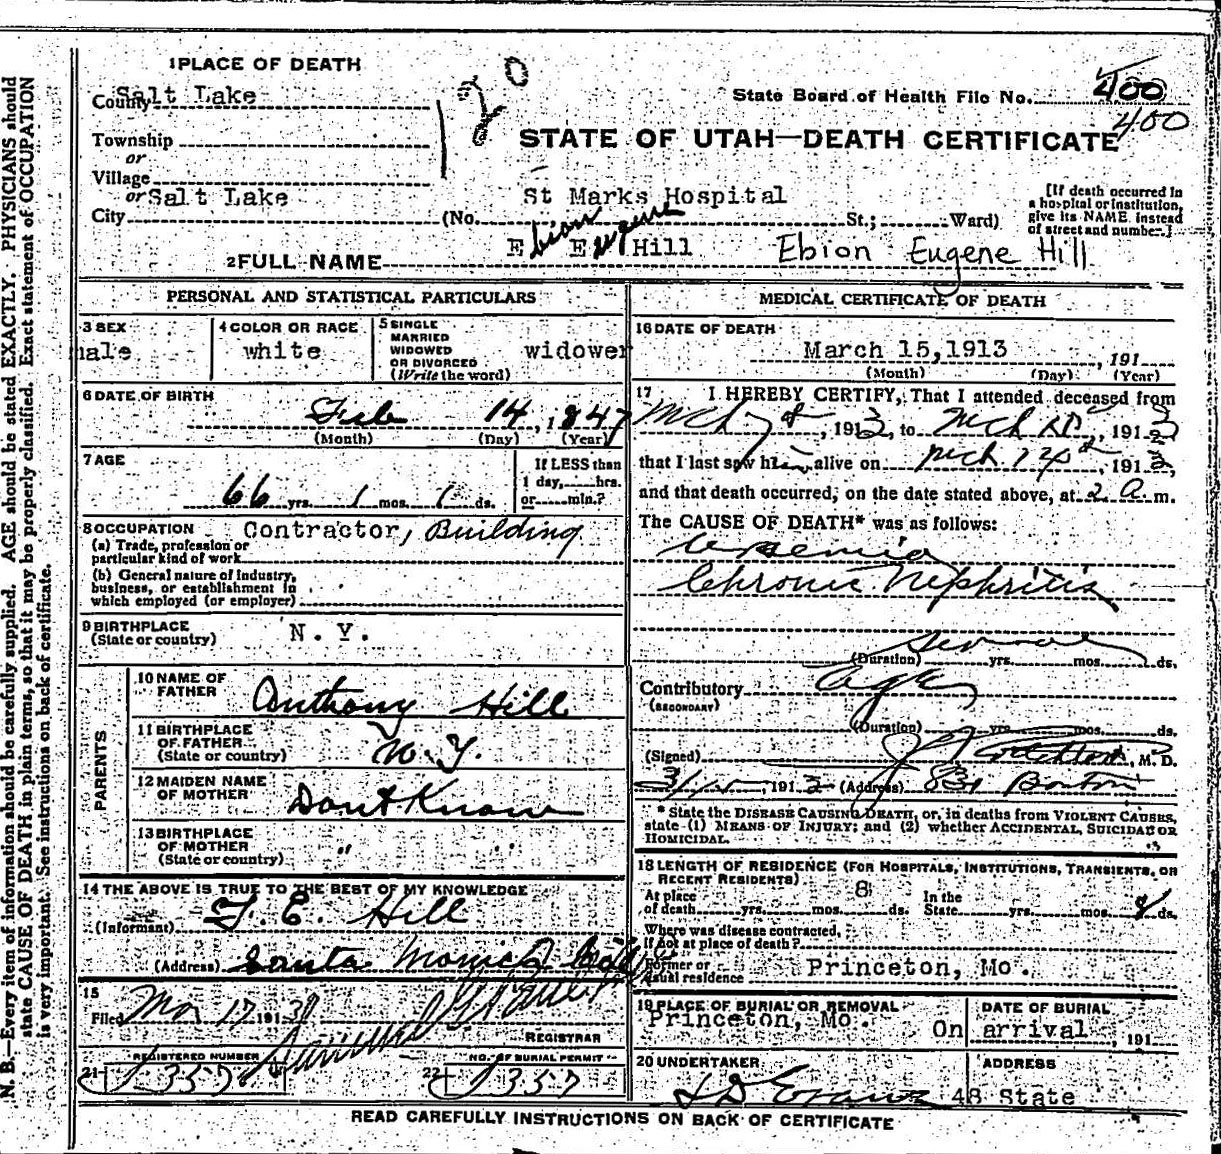 1 PLACE OF DEATH
County Salt Lake
120
State Board of Health File No. 400
400
Township
or
Village
or
City Salt Lake
STATE OF UTAH—DEATH CERTIFICATE
(No. St Marks Hospital St.; Ward)
[If death occurred in a hospital or institution, give its NAME instead of street and number.]
2 FULL NAME Ebion Eugene Hill Ebion Eugene Hill
PERSONAL AND STATISTICAL PARTICULARS
3 SEX male
4 COLOR OR RACE white
5 SINGLE MARRIED WIDOWED OR DIVORCED (Write the word) widower
6 DATE OF BIRTH
Feb 14, 1847
(Month) (Day) (Year)
7 AGE
66 yrs. 1 mos. 1 ds.
If LESS than 1 day, hrs. or min.?
8 OCCUPATION Contractor, Building
(a) Trade, profession or particular kind of work
(b) General nature of industry, business, or establishment in which employed (or employer)
9 BIRTHPLACE (State or country) N. Y.
PARENTS
10 NAME OF FATHER Anthony Hill
11 BIRTHPLACE OF FATHER (State or country) N. Y.
12 MAIDEN NAME OF MOTHER Dont Know
13 BIRTHPLACE OF MOTHER (State or country) " "
14 THE ABOVE IS TRUE TO THE BEST OF MY KNOWLEDGE
(Informant) F. E. Hill
(Address) Santa Monica
15
Filed Mar 17 191
REGISTRAR
REGISTERED NUMBER
21 357
NO. OF BURIAL PERMIT
22 357
MEDICAL CERTIFICATE OF DEATH
16 DATE OF DEATH
March 15, 1913, 191
(Month) (Day) (Year)
17 I HEREBY CERTIFY, That I attended deceased from
Mch 7th, 1913, to Mch 15, 1913
that I last saw him alive on Mch 14th, 1913,
and that death occurred, on the date stated above, at 2 a. m.
The CAUSE OF DEATH* was as follows:
Uraemia
Chronic Nephritis
(Duration) Several yrs. mos. ds.
Contributory Age
(SECONDARY)
(Duration) yrs. mos. ds.
(Signed) M. D.
3/15, 1913 (Address) Boston
* State the DISEASE CAUSING DEATH, or, in deaths from VIOLENT CAUSES, state (1) MEANS OF INJURY; and (2) whether ACCIDENTAL, SUICIDAL OR HOMICIDAL.
18 LENGTH OF RESIDENCE (FOR HOSPITALS, INSTITUTIONS, TRANSIENTS, OR RECENT RESIDENTS)
At place of death yrs. mos. 8 ds. In the State yrs. mos. ds.
Where was disease contracted, if not at place of death?
Former or usual residence Princeton, Mo.
19 PLACE OF BURIAL OR REMOVAL
Princeton, Mo.
DATE OF BURIAL
On arrival, 191
20 UNDERTAKER
S D Evans
ADDRESS
48 State
READ CAREFULLY INSTRUCTIONS ON BACK OF CERTIFICATE
N. B.—Every item of information should be carefully supplied. AGE should be stated EXACTLY. PHYSICIANS should
state CAUSE OF DEATH in plain terms, so that it may be properly classified. Exact statement of OCCUPATION
is very important. See instructions on back of certificate.